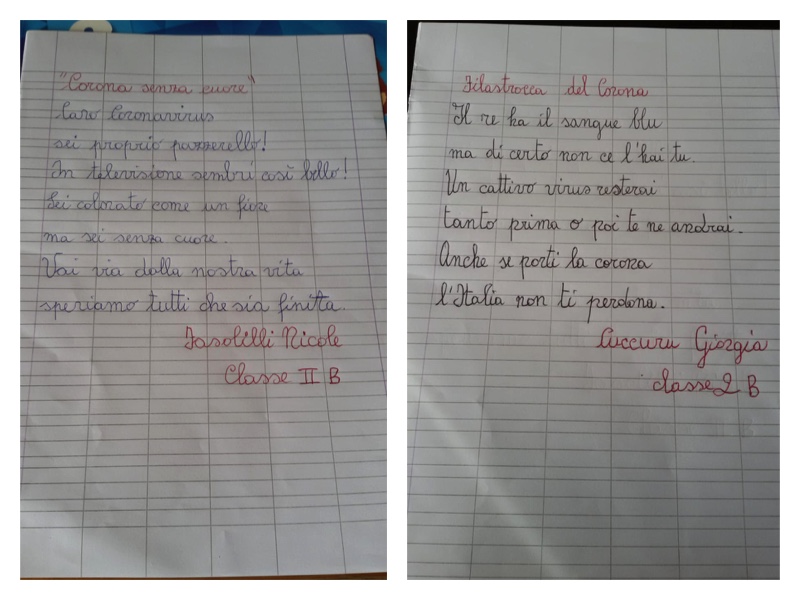 "Corona senza cuore"
Caro Coronavirus
sei proprio pazzerello!
In televisione sembri così bello!
Sei colorato come un fiore
ma sei senza cuore.
Vai via dalla nostra vita
speriamo tutti che sia finitta.
Iasolilli Nicole
Classe II B
Filastrocca del Corona
Il re ha il sangue blu
ma di certo non ce l'hai tu.
Un cattivo virus resterai
tanto prima o poi te ne andrai.
Anche se porti la corona
l'Italia non ti perdona.
Cuccuru Giorgia
classe 2 B